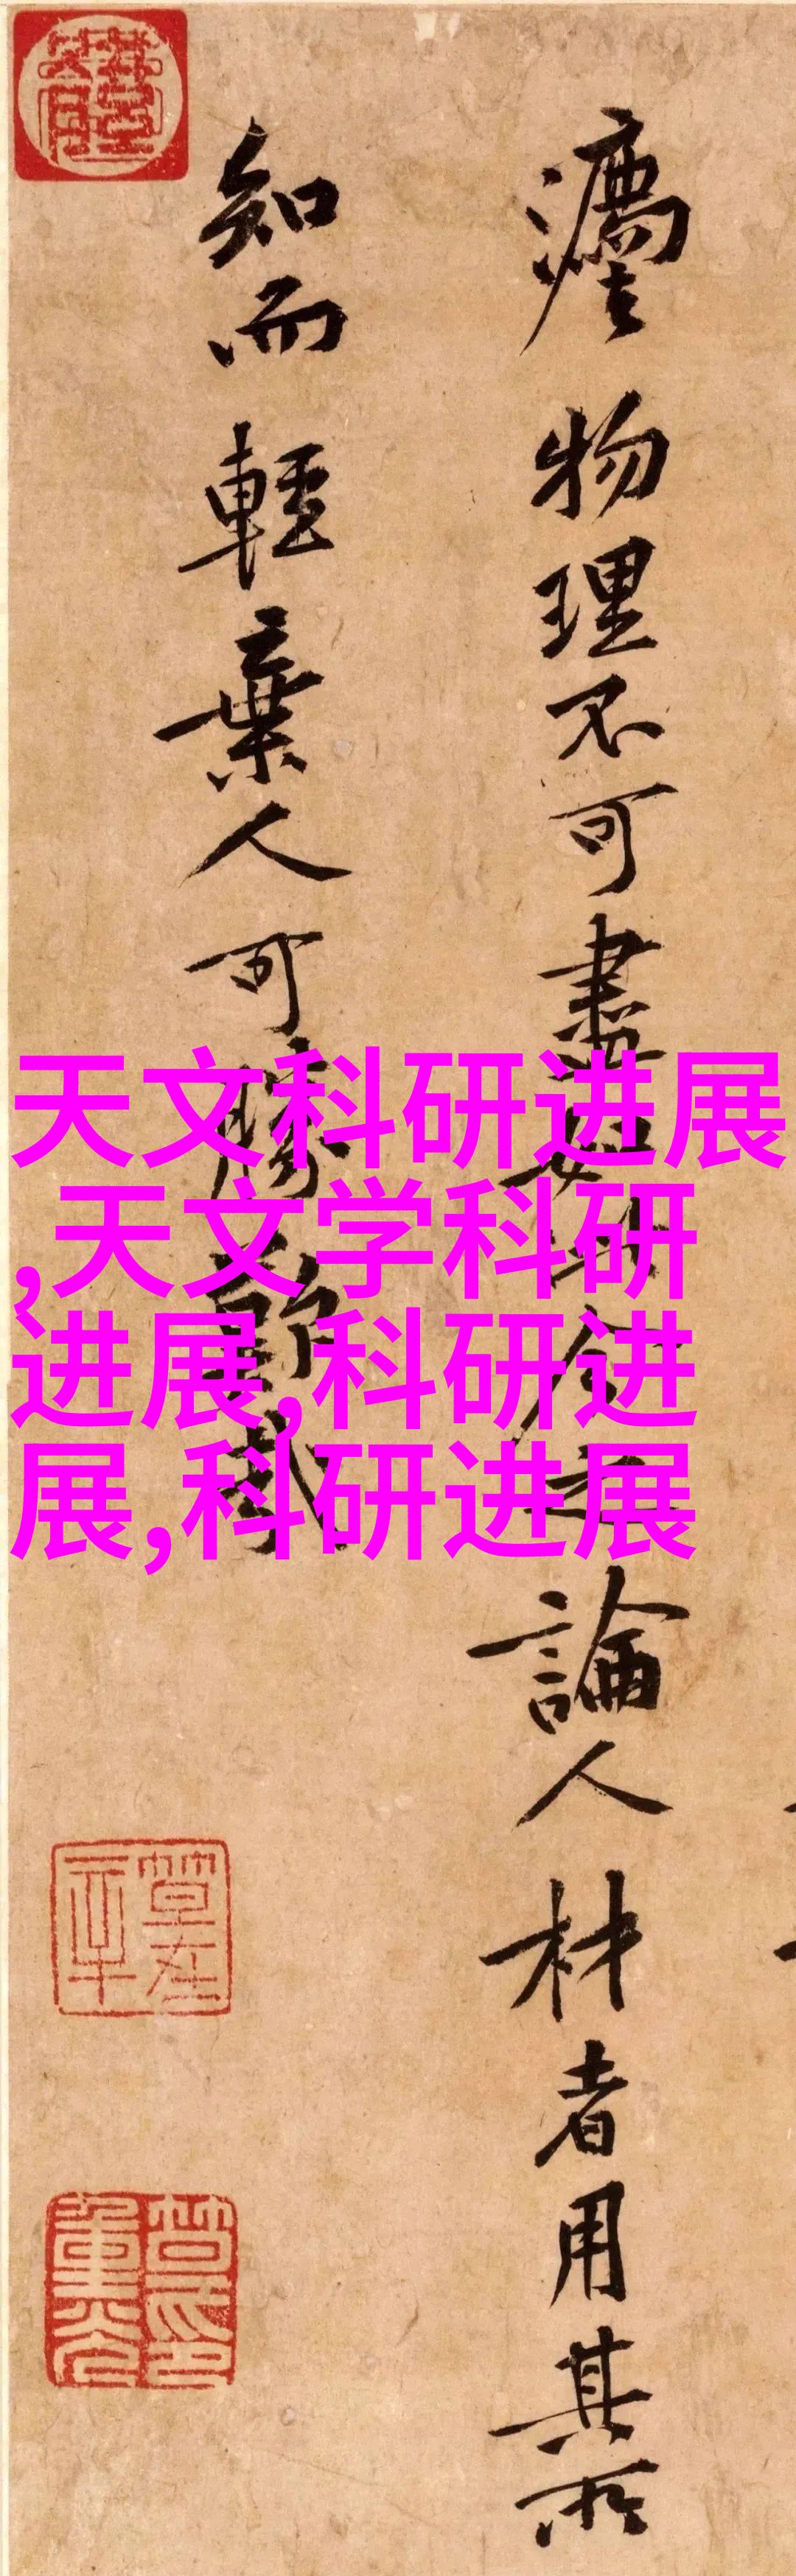 物理不可盡如此今之論人材者用其所
知而輕棄人可勝歎哉
天文科研进展
,天文学科研
进展,科研进
展,科研进展